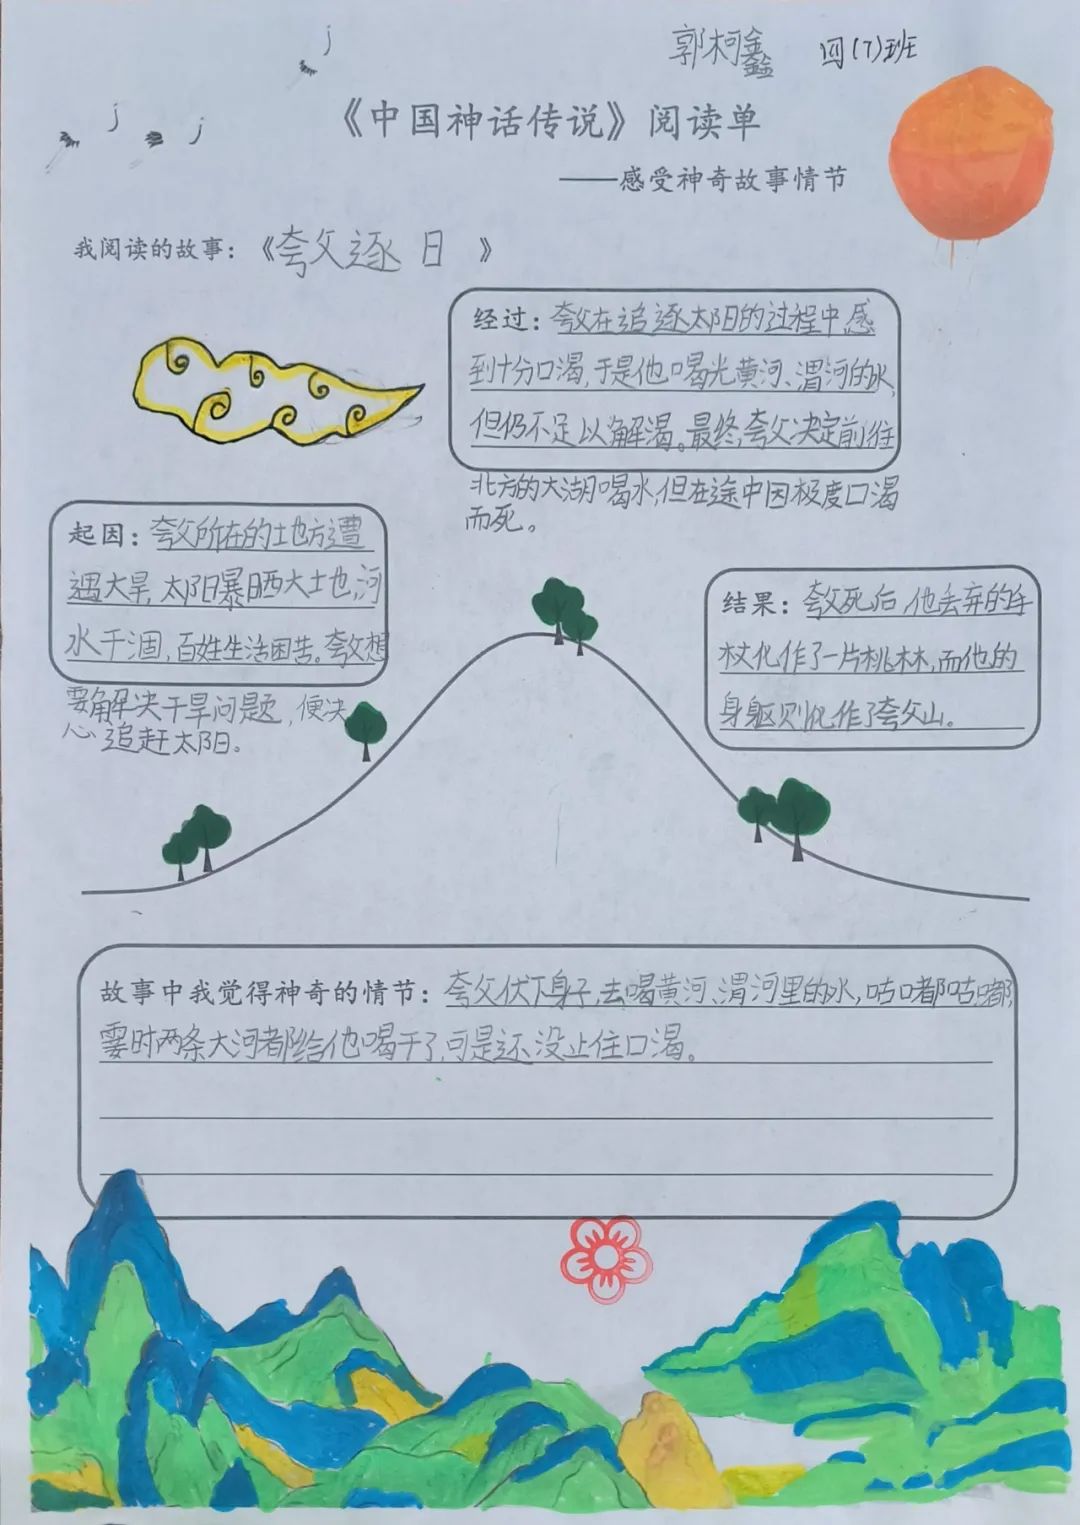 郭柯鑫 四(7)班
《中国神话传说》阅读单
——感受神奇故事情节
我阅读的故事：《夸父逐日》
经过：夸父在追逐太阳的过程中感
到十分口渴,于是他喝光黄河、渭河的水,
但仍不足以解渴。最终,夸父决定前往
北方的大湖喝水,但在途中因极度口渴
而死。
起因：夸父所在的土地方遭
遇大旱,太阳暴晒大土地,河
水干涸,百姓生活困苦。夸父想
要解决干旱问题,便决
心追赶太阳。
结果：夸父死后,他丢弃的手
杖化作了一片桃林,而他的
身躯则化作了夸父山。
故事中我觉得神奇的情节：夸父伏下身子,去喝黄河、渭河里的水,咕嘟咕嘟,
霎时两条大河都给他喝干了,可是还没止住口渴。